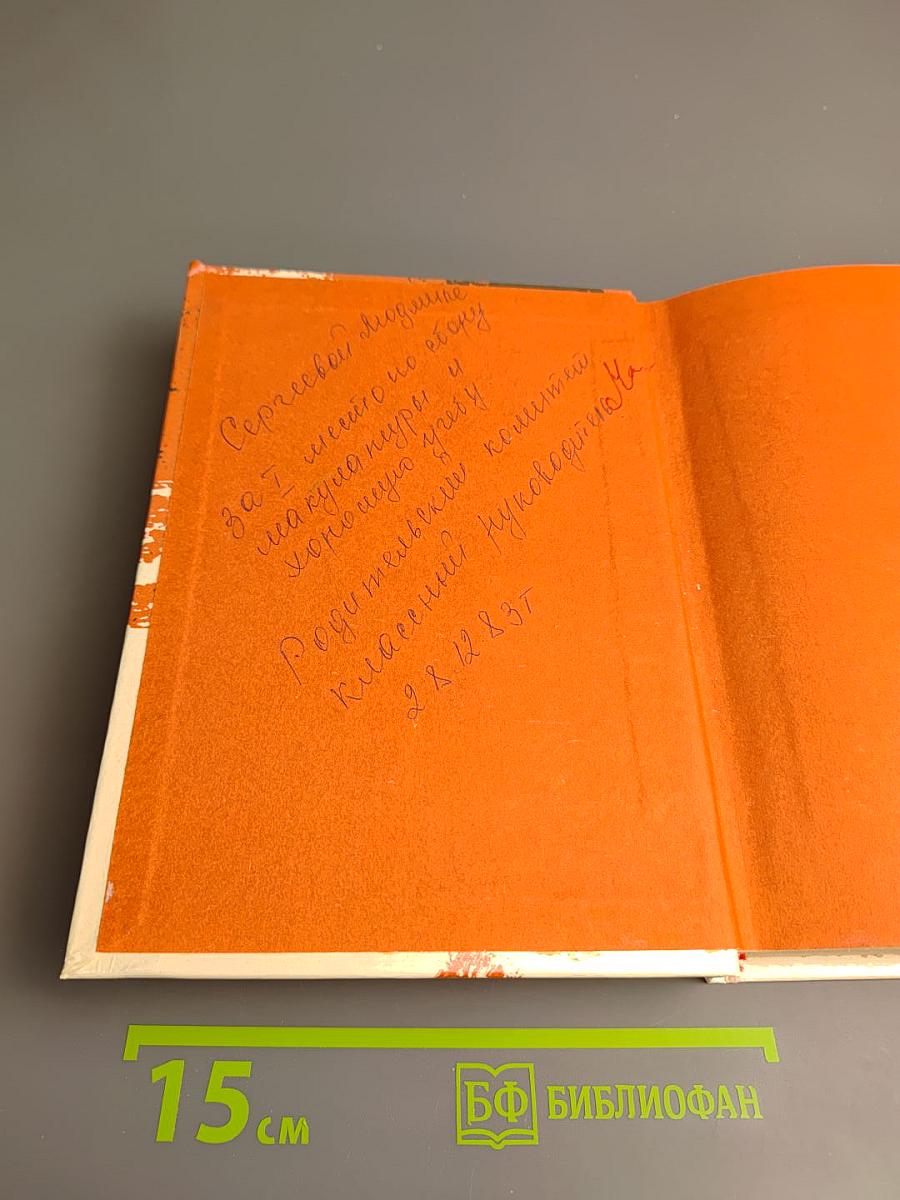 Сергеевой Людмиле
за I место по сбору
макулатуры и
хорошую учебу
Родительский комитет
классный руководитель
28.12 83 г
15 см
БФ БИБЛИОФАН